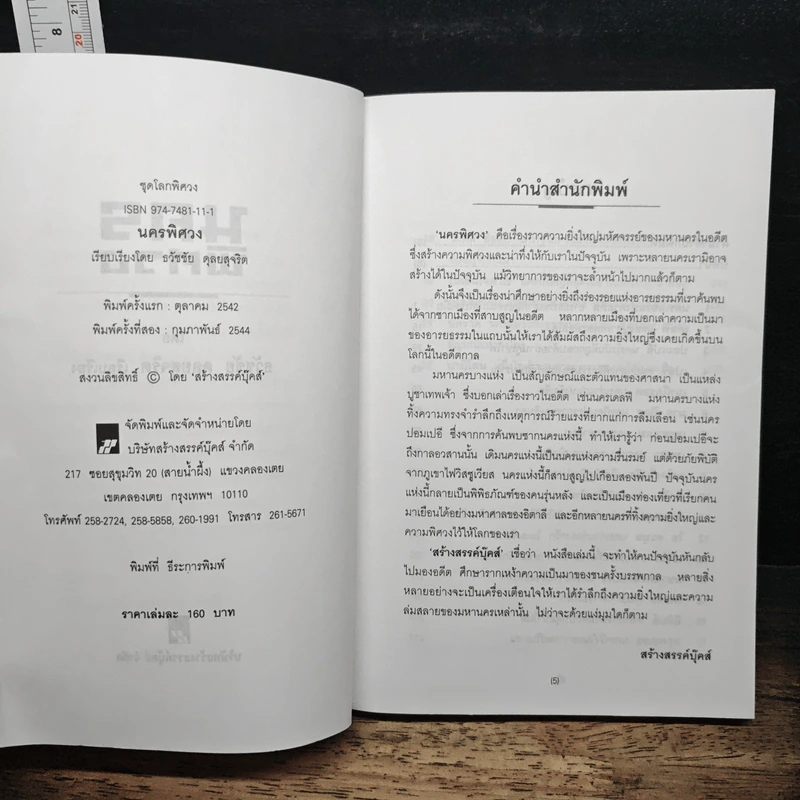 8
21
20
ชุดโลกพิศวง
ISBN 974-7481-11-1
นครพิศวง
เรียบเรียงโดย ธวัชชัย ดุลยสุจริต
พิมพ์ครั้งแรก : ตุลาคม 2542
พิมพ์ครั้งที่สอง : กุมภาพันธ์ 2544
สงวนลิขสิทธิ์ © โดย 'สร้างสรรค์บุ๊คส์'
จัดพิมพ์และจัดจำหน่ายโดย
บริษัทสร้างสรรค์บุ๊คส์ จำกัด
217 ซอยสุขุมวิท 20 (สายน้ำผึ้ง) แขวงคลองเตย
เขตคลองเตย กรุงเทพฯ 10110
โทรศัพท์ 258-2724, 258-5858, 260-1991 โทรสาร 261-5671
พิมพ์ที่ ธีระการพิมพ์
ราคาเล่มละ 160 บาท
คำนำสำนักพิมพ์
'นครพิศวง' คือเรื่องราวความยิ่งใหญ่มหัศจรรย์ของมหานครในอดีต
ซึ่งสร้างความพิศวงและน่าทึ่งให้กับเราในปัจจุบัน เพราะหลายนครเรามิอาจ
สร้างได้ในปัจจุบัน แม้วิทยาการของเราจะล้ำหน้าไปมากแล้วก็ตาม
ดังนั้นจึงเป็นเรื่องน่าศึกษาอย่างยิ่งถึงร่องรอยแห่งอารยธรรมที่เราค้นพบ
ได้จากซากเมืองที่สาบสูญในอดีต หลากหลายเมืองที่บอกเล่าความเป็นมา
ของอารยธรรมในแถบนั้นให้เราได้สัมผัสถึงความยิ่งใหญ่ซึ่งเคยเกิดขึ้นบน
โลกนี้ในอดีตกาล
มหานครบางแห่ง เป็นสัญลักษณ์และตัวแทนของศาสนา เป็นแหล่ง
บูชาเทพเจ้า ซึ่งบอกเล่าเรื่องราวในอดีต เช่นนครเดลฟี มหานครบางแห่ง
ทิ้งความทรงจำรำลึกถึงเหตุการณ์ร้ายแรงที่ยากแก่การลืมเลือน เช่นนคร
ปอมเปอี ซึ่งจากการค้นพบซากนครแห่งนี้ ทำให้เรารู้ว่า ก่อนปอมเปอีจะ
ถึงกาลอวสานนั้น เดิมนครแห่งนี้เป็นนครแห่งความรื่นรมย์ แต่ด้วยภัยพิบัติ
จากภูเขาไฟวิสซูเวียส นครแห่งนี้ก็สาบสูญไปเกือบสองพันปี ปัจจุบันนคร
แห่งนี้กลายเป็นพิพิธภัณฑ์ของคนรุ่นหลัง และเป็นเมืองท่องเที่ยวที่เรียกคน
มาเยือนได้อย่างมหาศาลของอิตาลี และอีกหลายนครที่ทิ้งความยิ่งใหญ่และ
ความพิศวงไว้ให้โลกของเรา
'สร้างสรรค์บุ๊คส์' เชื่อว่า หนังสือเล่มนี้ จะทำให้คนปัจจุบันหันกลับ
ไปมองอดีต ศึกษารากเหง้าความเป็นมาของชนครั้งบรรพกาล หลายสิ่ง
หลายอย่างจะเป็นเครื่องเตือนใจให้เราได้รำลึกถึงความยิ่งใหญ่และความ
ล่มสลายของมหานครเหล่านั้น ไม่ว่าจะด้วยแง่มุมใดก็ตาม
สร้างสรรค์บุ๊คส์
(5)